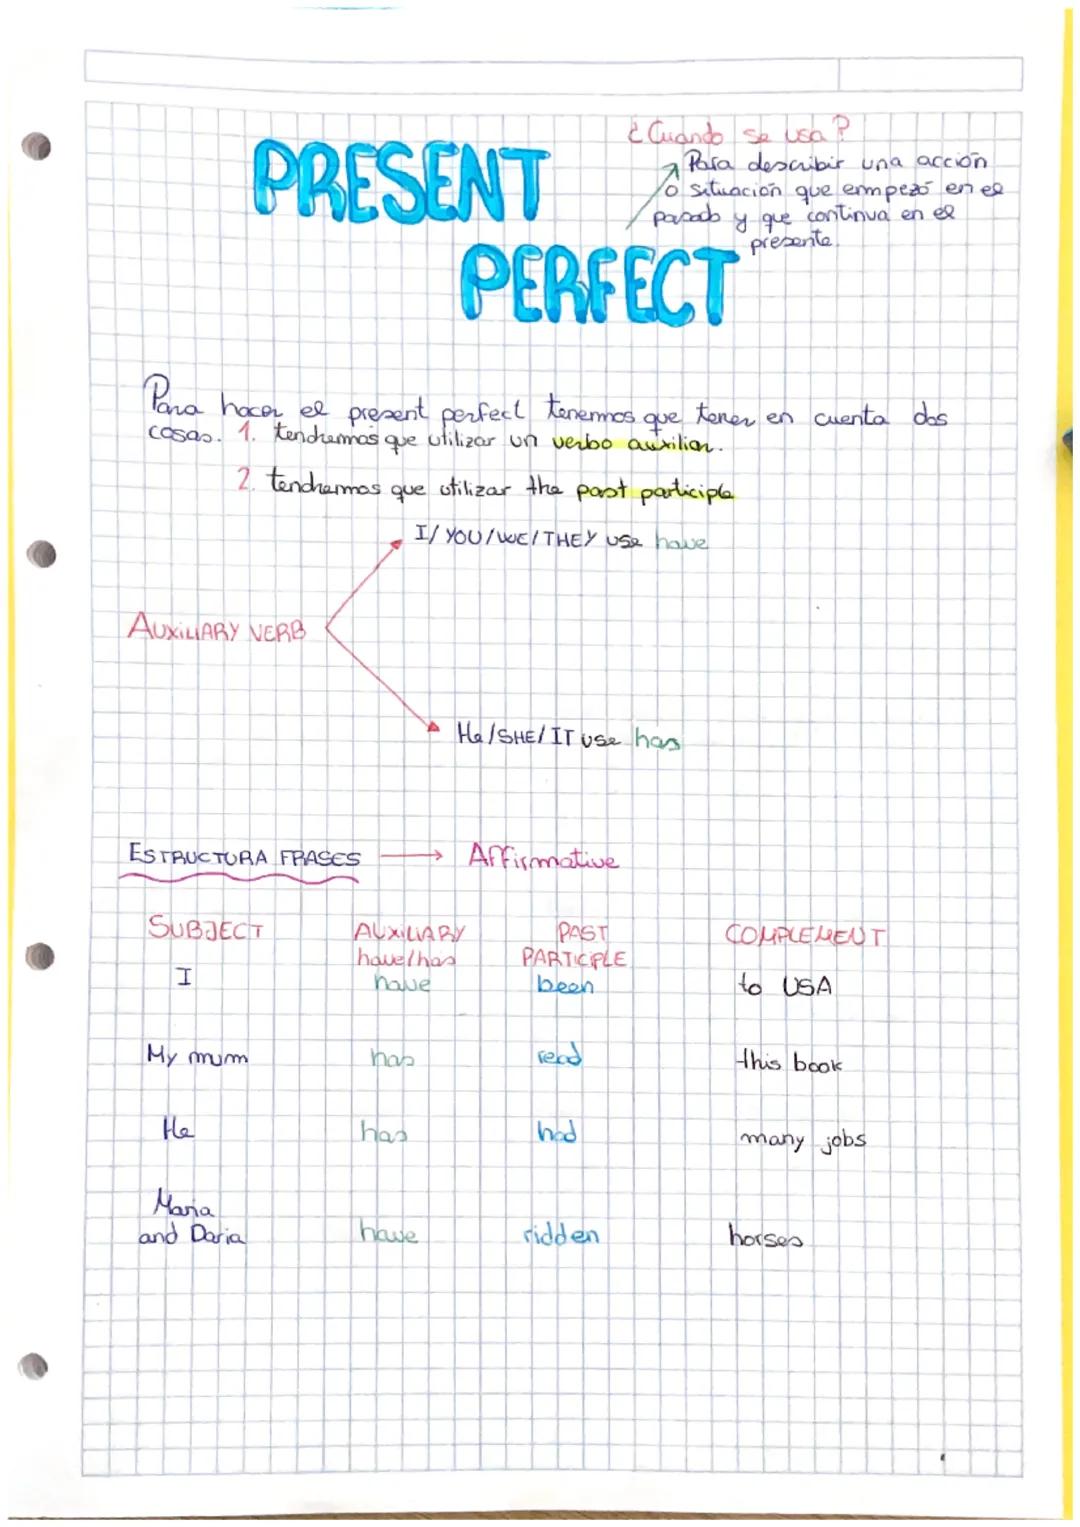 ¿Cuando se usa?
PRESENT
Para describir una acción
o situación que empezó en el
pasado y que continua en el
presente.
PERFECT
Para hacer el present perfect tenemos que tener en cuenta dos
cosas. 1. tendremos que utilizar un verbo auxiliar.
2. tendremos que utilizar the past participle
I/YOU/WE/THEY use have
AUXILIARY VERB
He/SHE/IT use has
ESTRUCTURA FRASES → Affirmative
SUBJECT AUXILIARY PAST COMPLEMENT
have/has PARTICIPLE
I have been to USA
My mum has read this book
He has had many jobs
Maria
and Daria have ridden horses